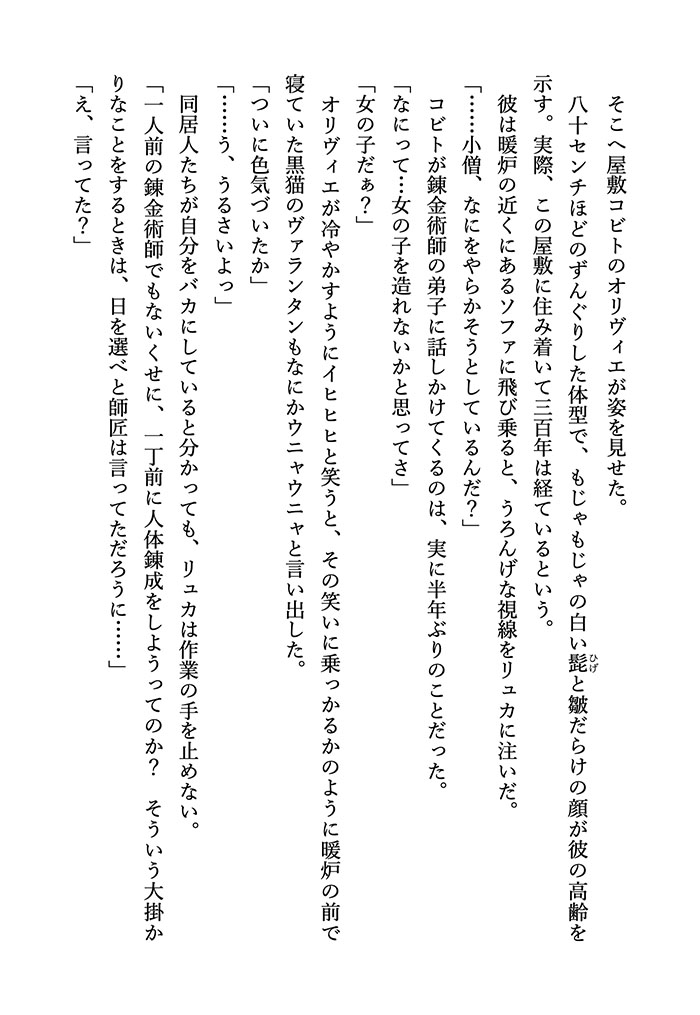 そこへ屋敷コビトのオリヴィエが姿を見せた。
　八十センチほどのずんぐりした体型で、もじゃもじゃの白い髭と皺だらけの顔が彼の高齢を
ひげ
示す。実際、この屋敷に住み着いて三百年は経ているという。
　彼は暖炉の近くにあるソファに飛び乗ると、うろんげな視線をリュカに注いだ。
「……小僧、なにをやらかそうとしているんだ？」
　コビトが錬金術師の弟子に話しかけてくるのは、実に半年ぶりのことだった。
「なにって…女の子を造れないかと思ってさ」
「女の子だぁ？」
　オリヴィエが冷やかすようにイヒヒヒと笑うと、その笑いに乗っかるかのように暖炉の前で
寝ていた黒猫のヴァランタンもなにかウニャウニャと言い出した。
「ついに色気づいたか」
「……う、うるさいよっ」
　同居人たちが自分をバカにしていると分かっても、リュカは作業の手を止めない。
「一人前の錬金術師でもないくせに、一丁前に人体錬成をしようってのか？　そういう大掛か
りなことをするときは、日を選べと師匠は言ってただろうに……」
「え、言ってた？」